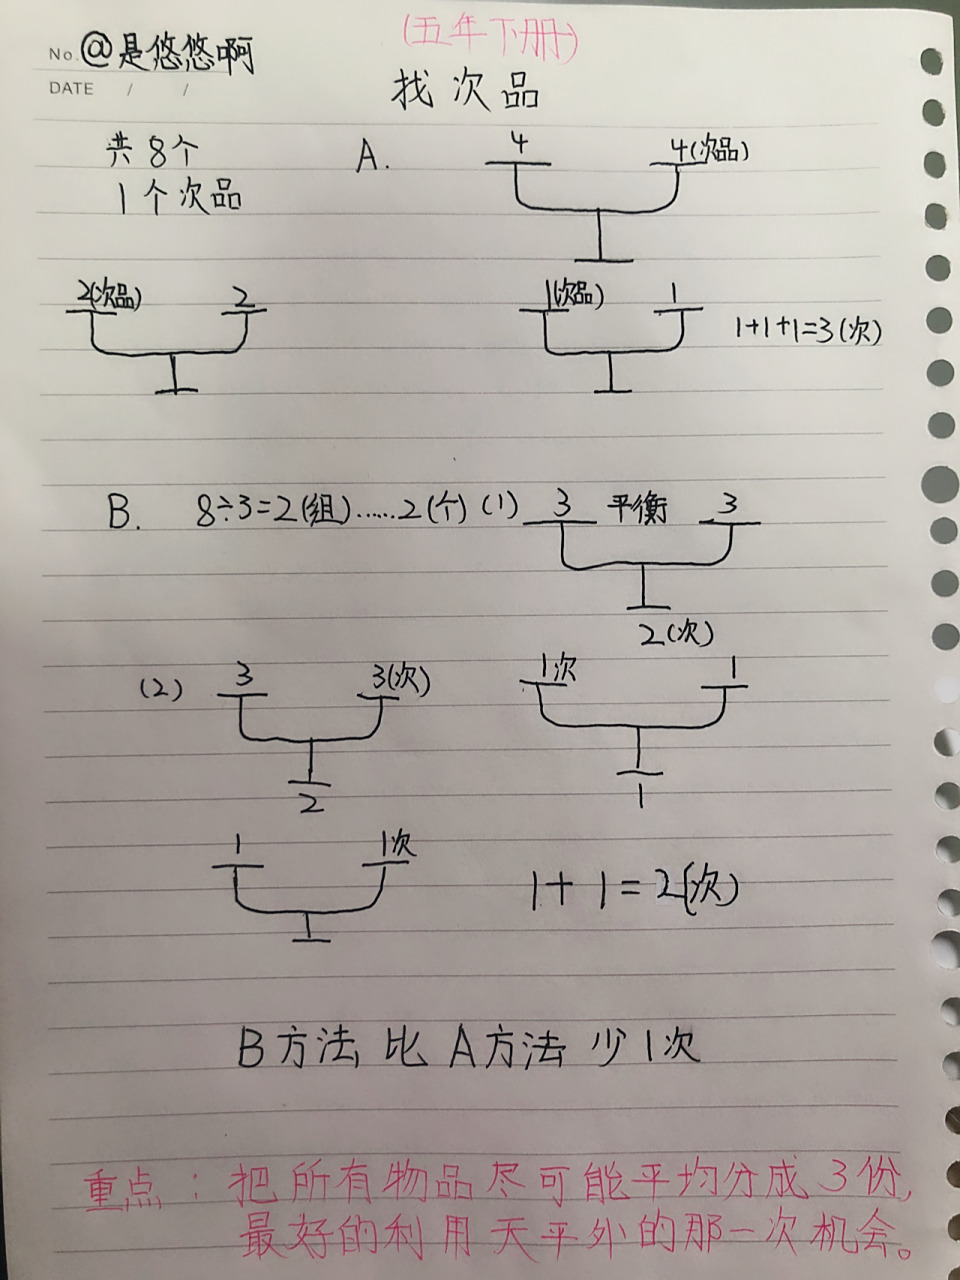 (五年下册)
No. @是悠悠啊
DATE / /
找次品
共8个
1个次品
A.
4 4(次品)
2(次品) 2
1(次品) 1
1+1+1=3(次)
B. 8÷3=2(组)……2(个) (1) 3 平衡 3
2(次)
(2) 3 3(次)
2
1次 1
1
1 1次
1+1=2(次)
B方法比A方法少1次
重点:把所有物品尽可能平均分成3份,
最好的利用天平外的那一次机会。